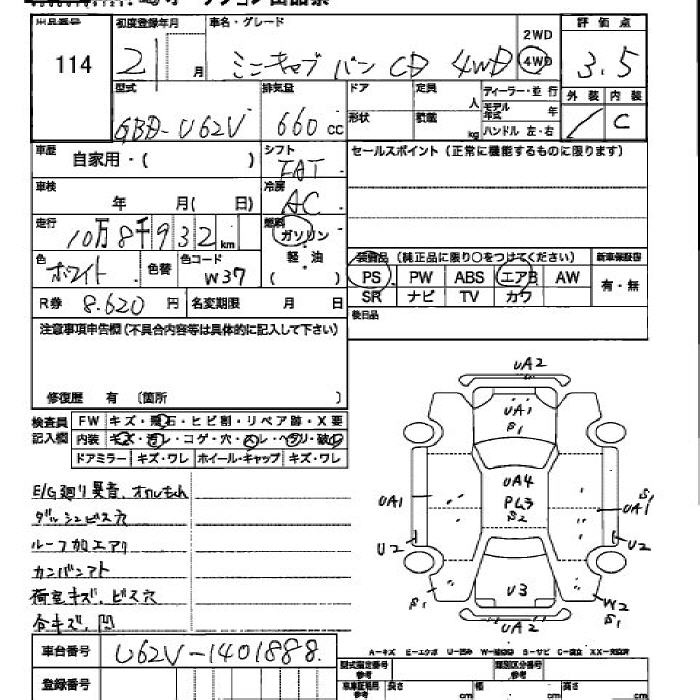 出品番号 初度登録年月 車名・グレード 2WD 評価点
114 2 月 ミニキャブ バン CD 4WD 4WD 3.5
型式 排気量 ドア 定員 人 ディーラー・並行 外装 内装
GBD-U62V 660 cc 形状 積載 kg モデル年式 年 ハンドル 左・右 C
車歴 自家用・( ) シフト FAT セールスポイント(正常に機能するものに限ります)
車検 年 月( 日) 冷房 AC
走行 10万8千932km 燃料 ガソリン
軽油
色 ホワイト 色替 色コード W37 ( )
装備品(純正品に限り○をつけてください) 新車保証書
PS PW ABS エアB AW 有・無
SR ナビ TV カワ
R券 8.620 円 名変期限 月 日
後日品
注意事項申告欄(不具合内容等は具体的に記入して下さい)
修復歴 有 〔箇所 〕
検査員記入欄 FW キズ・飛石・ヒビ割・リペア跡・X要
内装 キズ・汚レ・コゲ・穴・スレ・ヘタリ・破レ
ドアミラー キズ・ワレ ホイール・キャップ キズ・ワレ
E/G廻り異音、オイルもれ
ダッシュビス穴
ルーフ加エアリ
カンバンアト
荷室キズ、ビス穴
各キズ、凹
UA2
UA1
S1
UA4
PL3
S2
UA1
S1
UA1
U2
U2
S1
U3
W2
S1
UA2
A-キズ E-エクボ U-凹み W-補修跡 S-サビ C-腐食 XX-交換済
車台番号 U62V-1401888
登録番号
型式指定番号 参考 類別区分番号 参考
車車証明用 参考 長さ cm 幅 cm 高さ cm